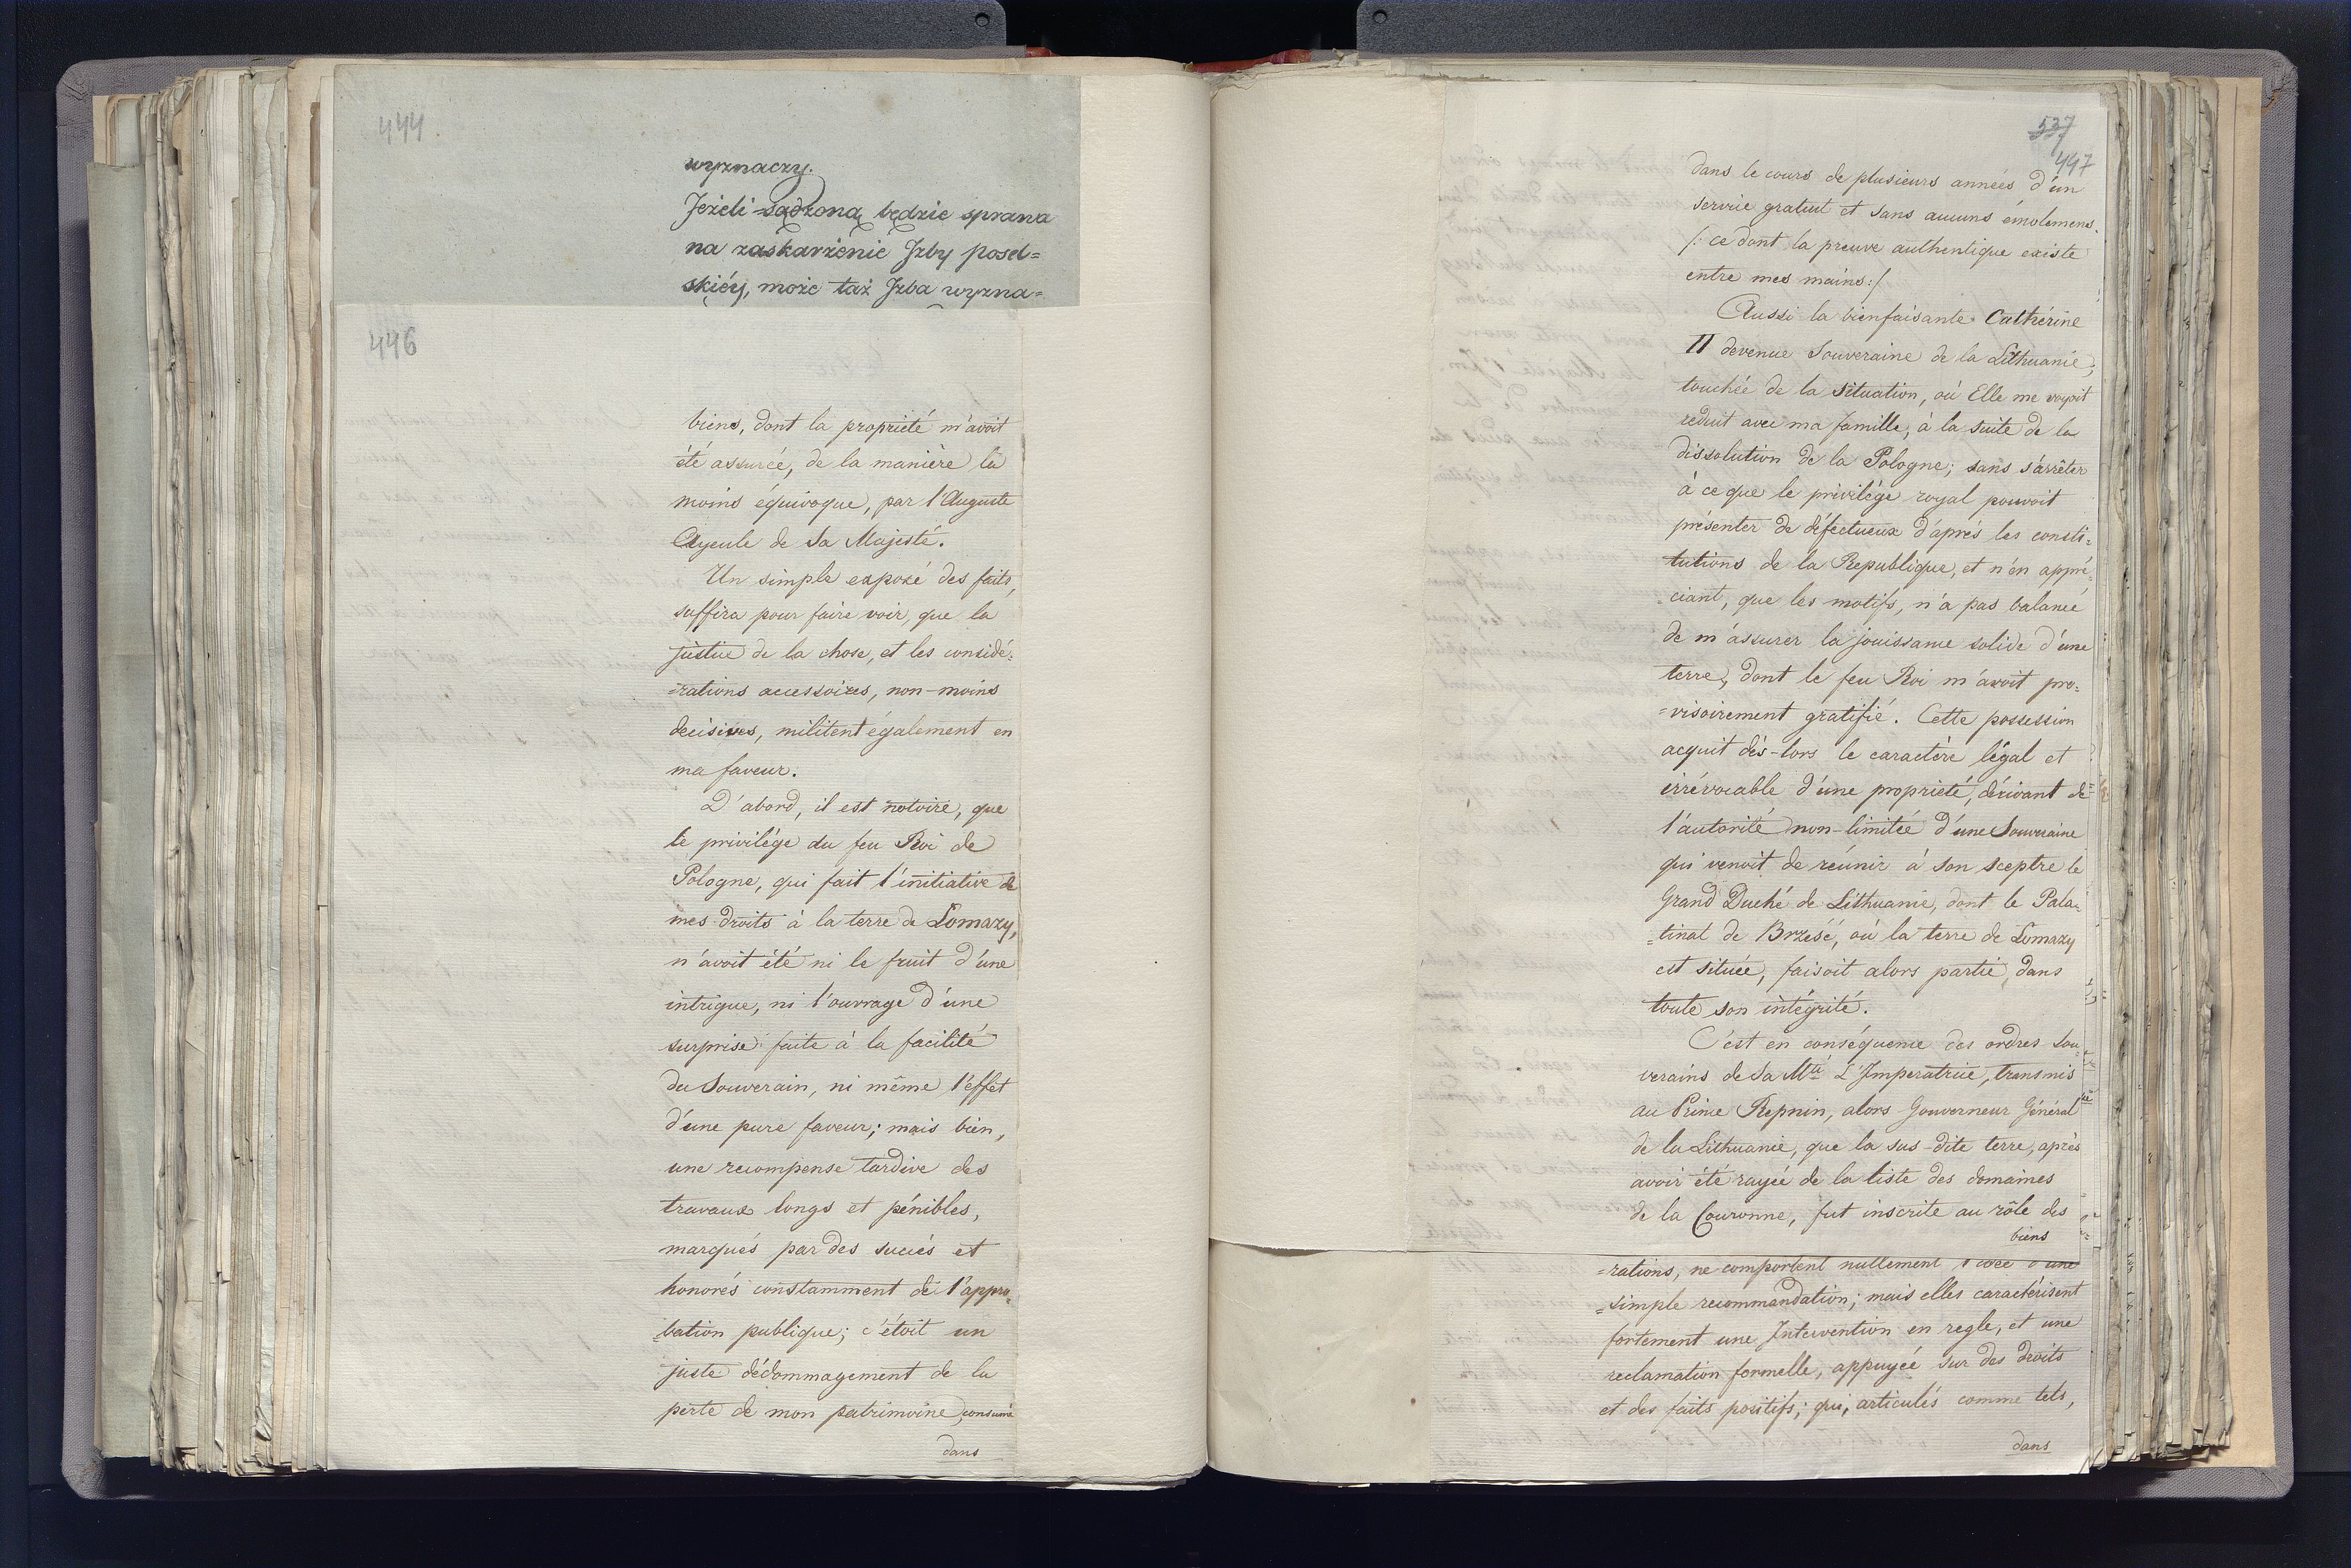 444.
wyznaczy.
Jeżeli sądzoną będzie sprawa
na zaskarżenie Jzby posel=
skiéy, może taż Jzba wyzna=
446
biens, dont la propriété m'avoit
été assurée, de la manière la
moins équivoque, par l'Auguste
Ayeule de Sa Majesté.
Un simple exposé des faits,
suffira pour faire voir, que la
justice de la chose, et les considé=
=rations accessoires, non-moins
decisives, militent également en
ma faveur.
D'abord, il est notoire, que
le privilége du feu Roi de
Pologne, qui fait l'initiative de
mes droits à la terre de Lomazy,
n'avoit été ni le fruit d'une
intrigue, ni l'ouvrage d'une
surprise faite à la facilité
du Souverain, ni même l'effet
d'une pure faveur; mais bien,
une recompense tardive des
travaux longs et pénibles,
marqués par des succés et
honorés constamment de l'appro=
=bation publique; c'étoit un
juste dédommagement de la
perte de mon patrimoine, consumé
dans
537
447
dans le cours de plusieurs années d'un
service gratuit et sans aucuns émolemens.
/: ce dont la preuve authentique existe
entre mes mains:/
Aussi la bienfaisante Cathérine
II devenue Souveraine de la Lithuanie,
touchée de la situation, où Elle me voyoit
reduit avec ma famille, à la suite de la
dissolution de la Pologne; sans s'arrêter
à ce que le privilége royal pouvoit
présenter de défectueux d'après les consti=
tutions de la Republique, et n'en appré=
ciant, que les motifs, n'a pas balancé
de m'assurer la jouissance solide d'une
terre, dont le feu Roi m'avoit pro=
=visoirement gratifié. Cette possession
acquit dès-lors le caractère légal et
irrévocable d'une propriété, dérivant de
l'autorité non-limitée d'une Souveraine
qui venoit de réunir à son sceptre le
Grand Duché de Lithuanie, dont le Pala=
=tinat de Brześć, où la terre de Lomazy
est située, faisoit alors partie, dans
toute son intégrité.
C'est en conséquence des ordres Sou=
verains de Sa Mté L'Imperatrice, transmis
au Prince Repnin, alors Gouverneur Général
de la Lithuanie, que la sus-dite terre, après
avoir été rayée de la liste des domaines
de la Couronne, fut inscrite au rôle des
biens
=rations, ne comportent nullement l'idée d'une
=simple recommandation; mais elles caractérisent
fortement une Intervention en regle, et une
reclamation formelle, appuyée sur des droits
et des faits positifs; qui, articulés comme tels,
dans